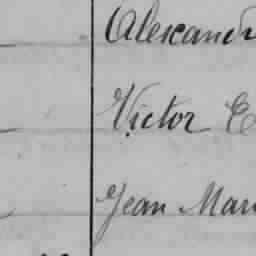 Alexand
Victor E
Jean Mari